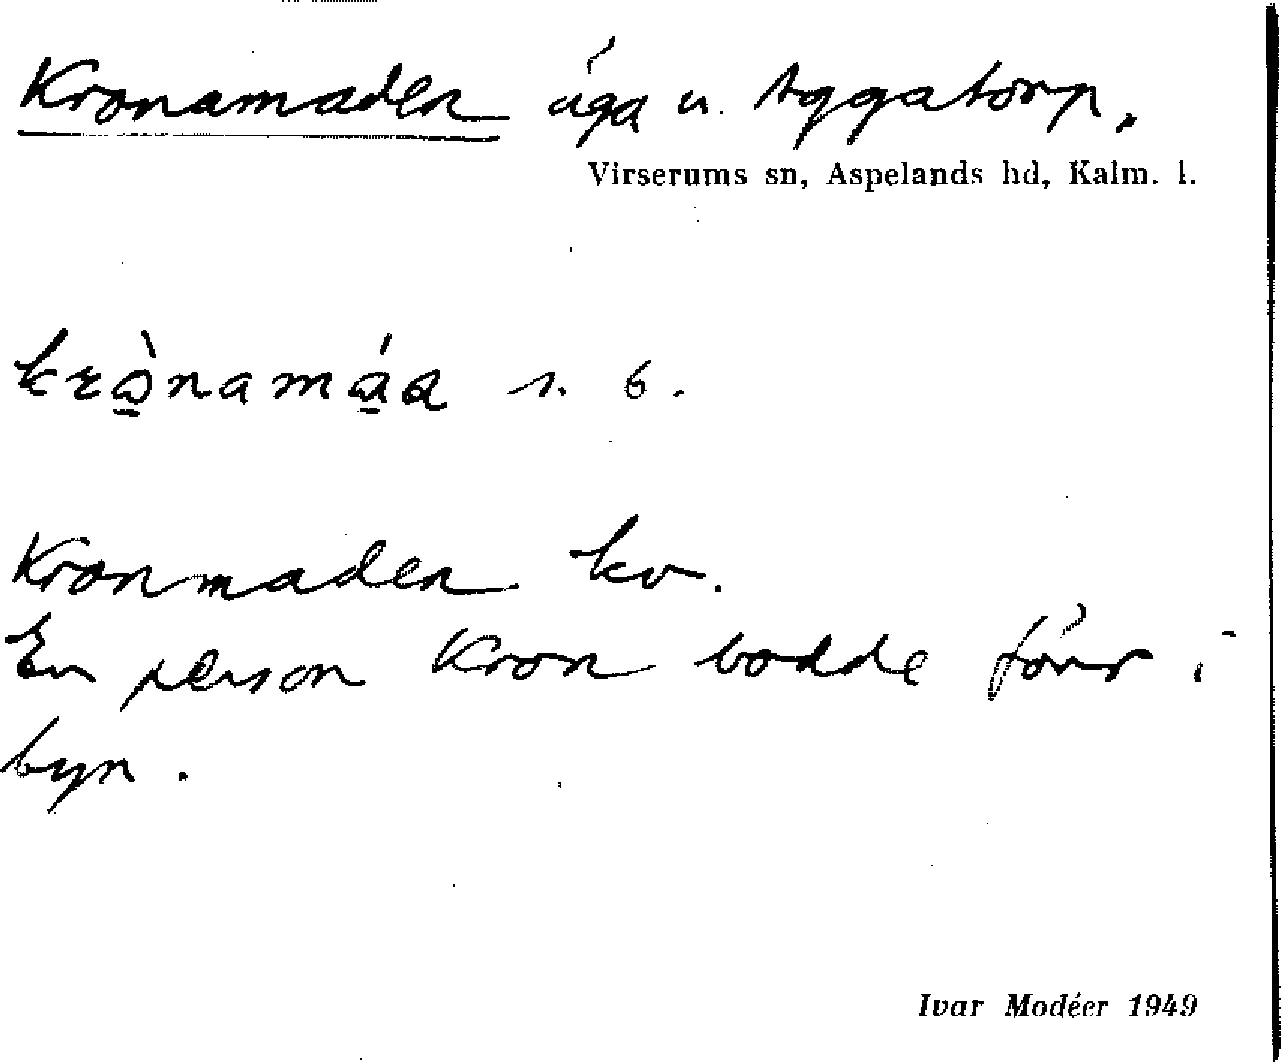 Kronamaden äga u. Aggatorp.
Virserums sn, Aspelands hd, Kalm. l.
s. b.
Kronmaden kv.
En person Kron bodde förr i
byn.
Ivar Modéer 1949